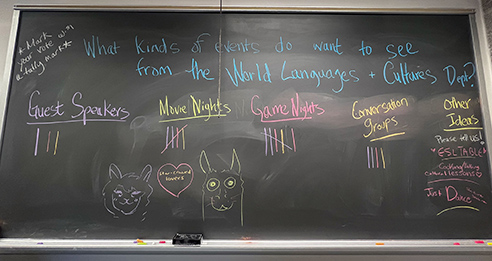 *Mark
your vote with
a tally mark*
What kinds of events do want to see
from the World Languages + Cultures Dept?
Guest Speakers
Movie Nights
Game Nights
Conversation
groups
Other
Ideas
Please tell us!
ESL TABLE
Cooking/baking
cultural lessons
Just Dance
lovers